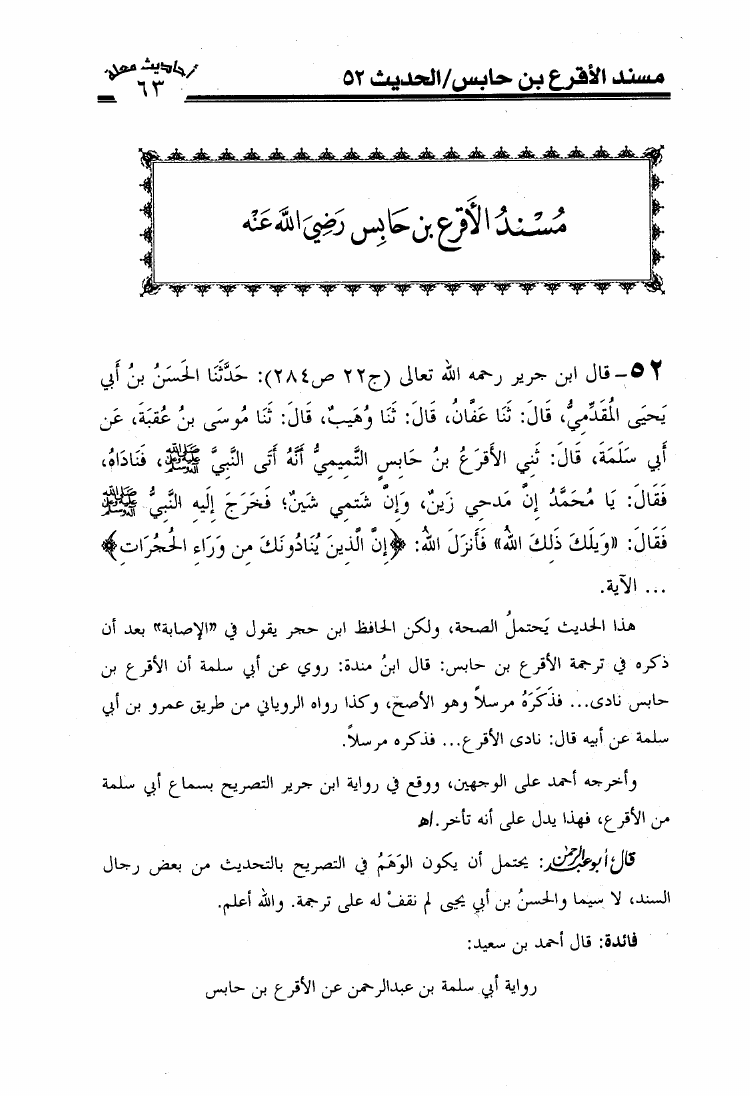 مسند الأقرع بن حابس/الحديث ٥٢
أحاديث معلة
٦٣
مُسْنَدُ الأَقْرَعِ بن حَابِس رَضِيَ اللَّه عَنْه
٥٢ـ قال ابن جرير رحمه الله تعالى (ج٢٢ ص٢٨٤): حَدَّثَنَا الحَسَنُ بنُ أَبي
يَحيَى المُقَدَّمِيُّ، قَالَ: ثَنَا عَفَّانُ، قَالَ: ثَنَا وُهَيبٌ، قَالَ: ثَنَا مُوسَى بنُ عُقبَةَ، عَن
أَبي سَلَمَةَ، قَالَ: ثَنِي الأَقرَعُ بنُ حَابِسٍ التَّمِيمِيُّ أَنَّهُ أَتَى النَّبِيَّ ﷺ، فَنَادَاهُ،
فَقَالَ: يَا مُحَمَّدُ إِنَّ مَدحِي زَينٌ، وَإِنَّ شَتمِي شَينٌ؛ فَخَرَجَ إِلَيهِ النَّبِيُّ ﷺ
فَقَالَ: «وَيلَكَ ذَلِكَ اللهُ» فَأَنزَلَ اللهُ: ﴿إِنَّ الَّذِينَ يُنَادُونَكَ مِن وَرَاءِ الحُجُرَاتِ﴾
... الآية.
هذا الحديث يَحتملُ الصحة، ولكن الحافظ ابن حجر يقول في «الإصابة» بعد أن
ذكره في ترجمة الأقرع بن حابس: قال ابنُ مندة: روي عن أبي سلمة أن الأقرع بن
حابس نادى... فذَكَرَهُ مرسلاً وهو الأصح، وكذا رواه الروياني من طريق عمرو بن أبي
سلمة عن أبيه قال: نادى الأقرع... فذكره مرسلاً.
وأخرجه أحمد على الوجهين، ووقع في رواية ابن جرير التصريح بسماع أبي سلمة
من الأقرع، فهذا يدل على أنه تأخر.اﻫ
قال أبو عبد الرحمن: يحتمل أن يكون الوَهَمُ في التصريح بالتحديث من بعض رجال
السند، لا سيما والحسنُ بن أبي يحيى لم نقفْ له على ترجمة. والله أعلم.
فائدة: قال أحمد بن سعيد:
رواية أبي سلمة بن عبدالرحمن عن الأقرع بن حابس